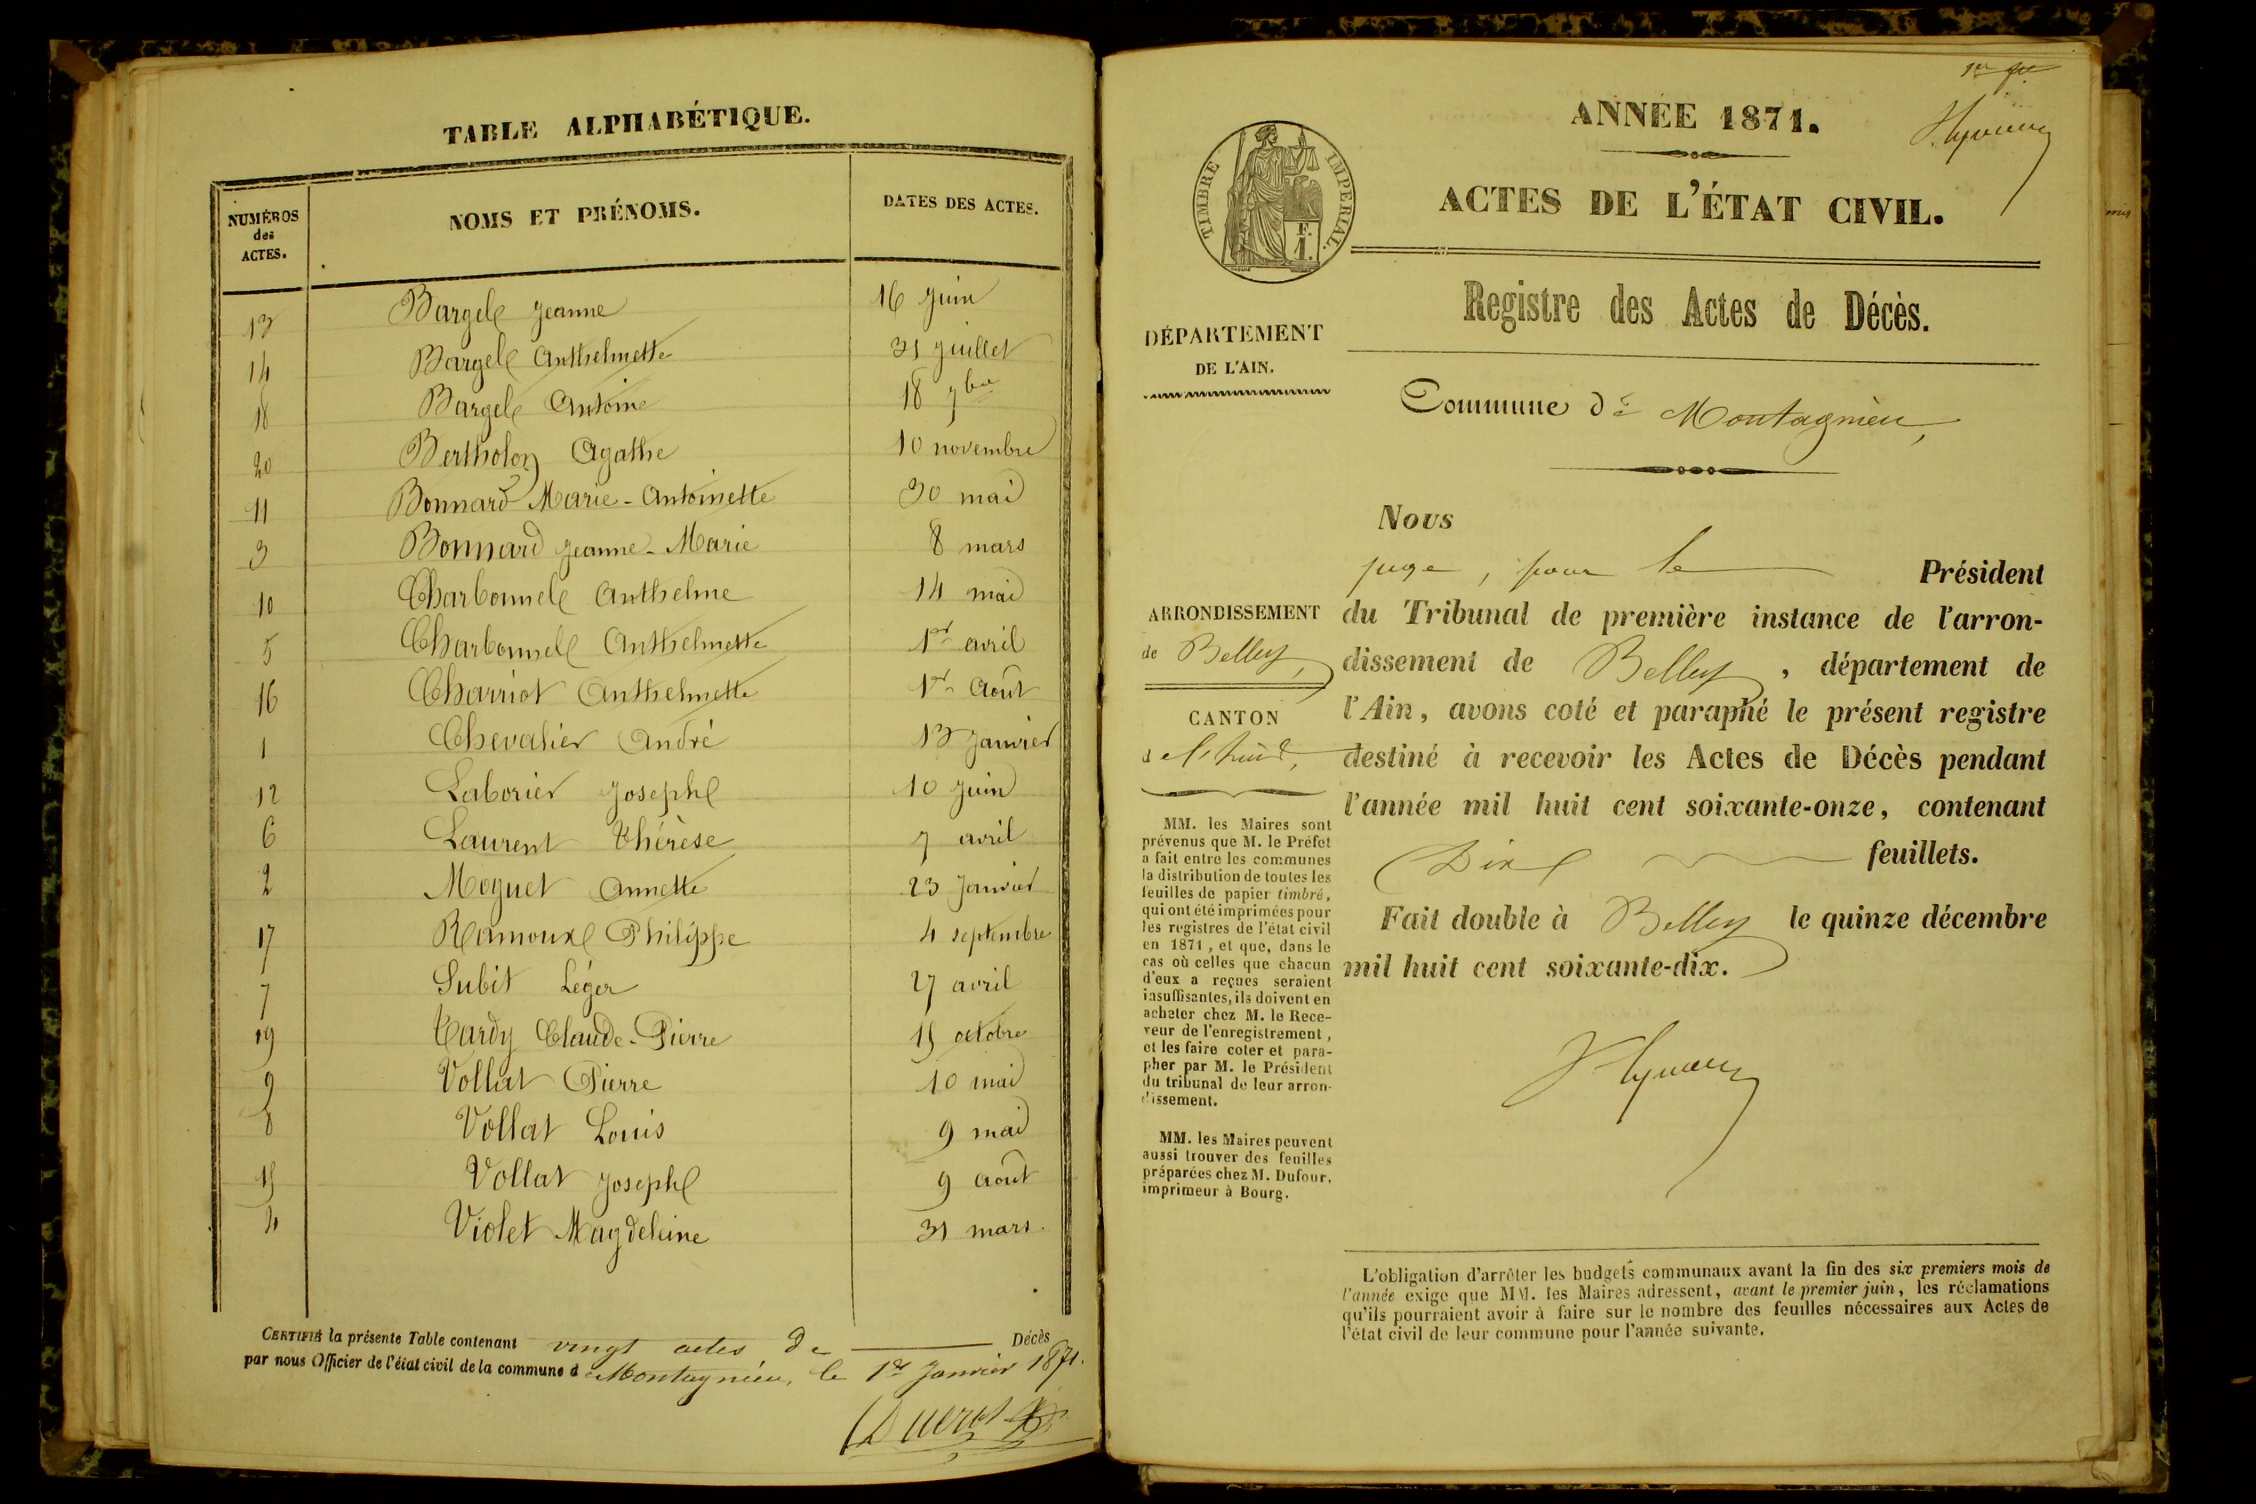 TABLE ALPHABÉTIQUE.
NUMÉROS
des
ACTES.
NOMS ET PRÉNOMS.
DATES DES ACTES.
13 Bargel Jeanne 16 juin
14 Bargel Anthelmette 31 juillet
18 Bargel Antoine 18 7bre
20 Bertholon Agathe 10 novembre
11 Bonnard Marie-Antoinette 30 mai
3 Bonnard Jeanne-Marie 8 mars
10 Charbonnel Anthelme 14 mai
5 Charbonnel Anthelmette 1er avril
16 Charriot Anthelmette 1er Août
1 Chevalier André 13 Janvier
12 Laborier Joseph 10 juin
6 Laurent Thérèse 7 avril
2 Moguet Annette 23 Janvier
17 Ramoux Philippe 4 septembre
7 Subit Léger 27 avril
19 Tardy Claude-Pierre 15 octobre
9 Vollat Pierre 10 mai
8 Vollat Louis 9 mai
15 Vollat Joseph 9 août
4 Violet Magdeleine 31 mars.
CERTIFIÉ la présente Table contenant vingt actes de Décès
par nous Officier de l'état civil de la commune de Montagnieu, le 1er Janvier 1871.
ANNÉE 1871.
TIMBRE IMPERIAL.
F.
1.
ACTES DE L'ÉTAT CIVIL.
Registre des Actes de Décès.
DÉPARTEMENT
DE L'AIN.
Commune de Montagnieu,
Nous
juge, pour le Président
ARRONDISSEMENT
de Belley,
CANTON
du Tribunal de première instance de l'arron-
dissement de Belley, département de
l'Ain, avons coté et paraphé le présent registre
destiné à recevoir les Actes de Décès pendant
l'année mil huit cent soixante-onze, contenant
Dix feuillets.
Fait double à Belley le quinze décembre
mil huit cent soixante-dix.
MM. les Maires sont
prévenus que M. le Préfet
a fait entre les communes
la distribution de toutes les
feuilles de papier timbré,
qui ont été imprimées pour
les registres de l'état civil
en 1871, et que, dans le
cas où celles que chacun
d'eux a reçues seraient
insuffisantes, ils doivent en
acheter chez M. le Rece-
veur de l'enregistrement,
et les faire coter et para-
pher par M. le Président
du tribunal de leur arron-
dissement.
MM. les Maires peuvent
aussi trouver des feuilles
préparées chez M. Dufour,
imprimeur à Bourg.
L'obligation d'arrêter les budgets communaux avant la fin des six premiers mois de
l'année exige que MM. les Maires adressent, avant le premier juin, les réclamations
qu'ils pourraient avoir à faire sur le nombre des feuilles nécessaires aux Actes de
l'état civil de leur commune pour l'année suivante.